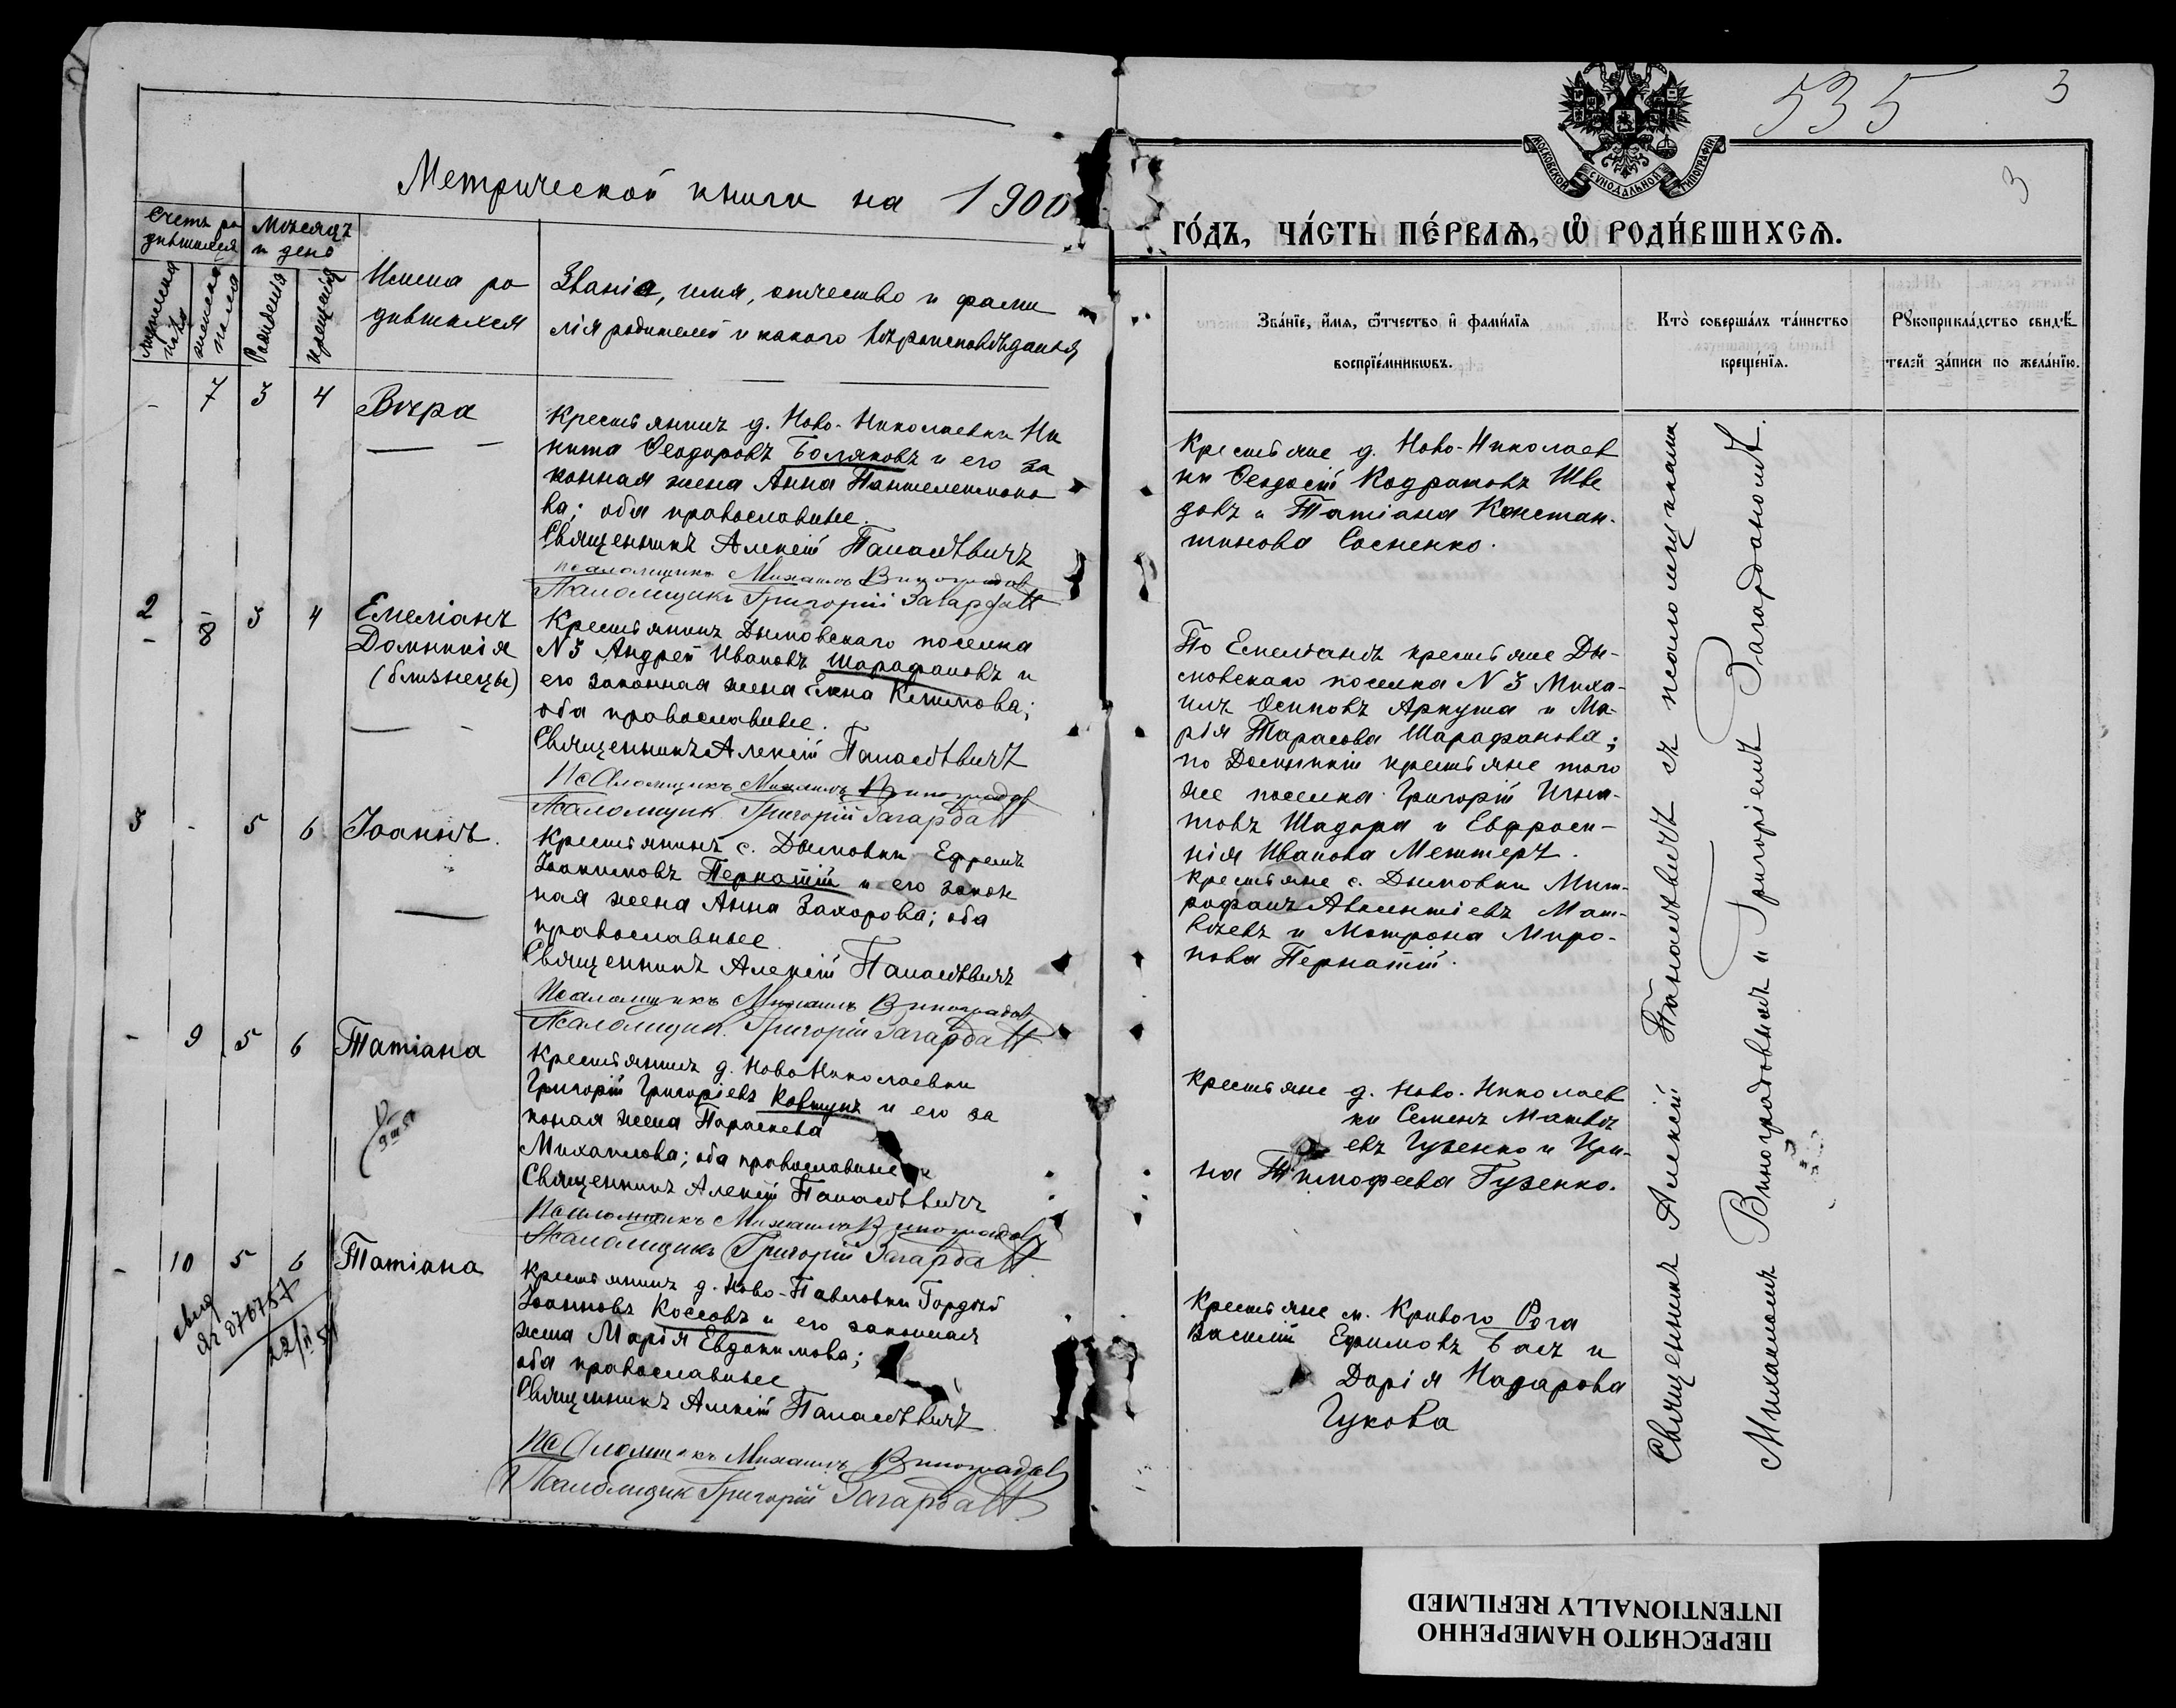 535
3
3
МОСКОВСКОЙ СѴНОДАЛЬНОЙ ТИПОГРАФІИ
Метрической книги на 1900
го́дъ, ча́сть пе́рваѧ, ѽ роди́вшихсѧ.
Счетъ ро
дившихся
Мѣсяцъ
и день
женска
пола
Рожденія
крещенія
Имена ро
дившихся
Званіа, имя, отчество и фами
лія родителей и какого вѣроисповѣданья
Зва́нїе, и҆́мѧ, ѻ҆́тчество и҆ фамї́лїѧ
воспрїе́мникѡвъ.
Кто̀ соверша́лъ та́инство
креще́нїѧ.
Рꙋкоприкла́дство свидѣ́
телей за́писи по жела́нїю.
- 7 3 4 Вѣра
Крестьянинъ д. Ново-Николаевки Ни
кита Ѳеодоровъ Боляковъ и его за
конная жена Анна Пантелеимоно
ва; оба православные.
Священникъ Алексій Панасѣвичъ
Псаломщикъ Михаилъ Виноградов
Псаломщикъ Григорій Загарда
Крестьяне д. Ново-Николаев
ки Ѳеодосій Кодратовъ Шве
довъ и Татіана Констан-
тинова Сосненко.
2 - 3 4 Емеліанъ
- 8 Домникія
(близнецы)
Крестьянинъ Дымовскаго поселка
N 3 Андрей Ивановъ Шарафановъ и
его законная жена Елена Климова;
оба православные.
Священникъ Алексій Панасѣвичъ
Псаломщикъ Михаилъ Виноградов
Псаломщик Григорій Загарда
По Емеліанѣ крестьяне Ды-
мовскаго поселка N 3 Миха-
илъ Осиповъ Аркуша и Ма-
рія Тарасова Шарафанова;
по Домникіи крестьяне того
же поселка Григорій Игна-
товъ Шадора и Евфроси-
нія Иванова Метлеръ.
3 - 5 6 Іоаннъ.
Крестьянинъ с. Дымовки Ефремъ
Іоакимовъ Пернатій и его закон
ная жена Анна Захорова; оба
православные.
Священникъ Алексій Панасѣвичъ
Псаломщикъ Михаилъ Виноградов
Псаломщик. Григорій Загарда
Крестьяне с. Дымовки Мит-
рофанъ Авксентіевъ Мат-
вѣевъ и Матрона Миро-
нова Пернатій.
- 9 5 6 Татіана
Крестьянинъ д. Ново Николаевки
Григорій Григоріевъ Ковтунъ и его за
коная жена Параскева
Михаилова; оба православные
Священникъ Алексій Панасѣвичъ
Псаломщикъ Михаилъ Виноградов
Псаломщикъ Григорій Загарда
Крестьяне д. Ново-Николаев
ки Семенъ Матвѣ
евъ Гузенко и Ири-
на Тимофеева Гузенко.
- 10 5 6 Татіана
Крестьянинъ д. Ново-Павловки Гордѣй
Іоанновъ Коссовъ и его законная
жена Марія Евдокимова;
оба православные
Священникъ Алексій Панасѣвичъ
Псаломщикъ Михаилъ Виноградов
Псаломщик Григорій Загарда
Крестьяне м. Кривого Рога
Василій Ефимовъ Басъ и
Дарія Назарова
Гукова
Священникъ Алексій Панасѣвичъ съ псаломщиками
Михаиломъ Виноградовымъ и Григоріемъ Загарданомъ.
ПЕРЕСНЯТО НАМЕРЕННО
INTENTIONALLY REFILMED